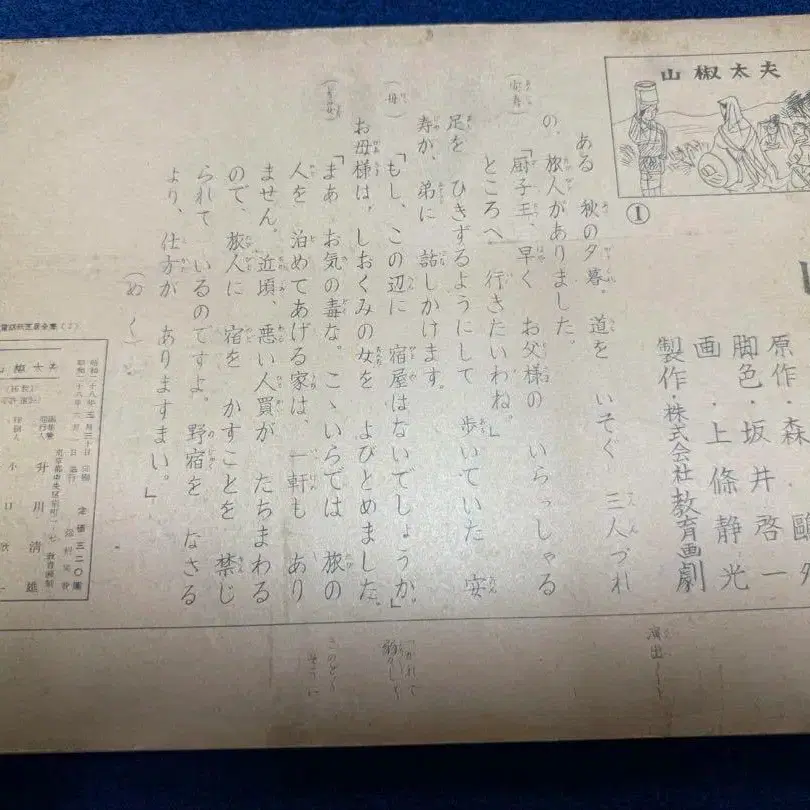 山椒太夫
①
原作・森鷗外
脚色・坂井啓一
画・上條静光
製作・株式会社教育画劇
ある 秋の夕暮。道を いそぐ 三人づれ
の、旅人がありました。
(安寿)
「厨子王、早く お父様の いらっしゃる
ところへ 行きたいわね。」
足を ひきずるようにして 歩いていた 安
寿が、弟に 話しかけます。
(母)
「もし、この辺に 宿屋はないでしょうか。」
お母様は、しおくみの女を よびとめました。
「まあ お気の毒な。こゝいらでは 旅の
人を 泊めてあげる家は、一軒も あり
ません。近頃、悪い人買が たちまわる
ので、旅人に 宿を かすことを 禁じ
られて いるのですよ。野宿を なさる
より、仕方が ありますまい。」
(ぬ く)
演出
つかれて
きのどく
そうに
山椒太夫
定価三二〇圓
升川清雄